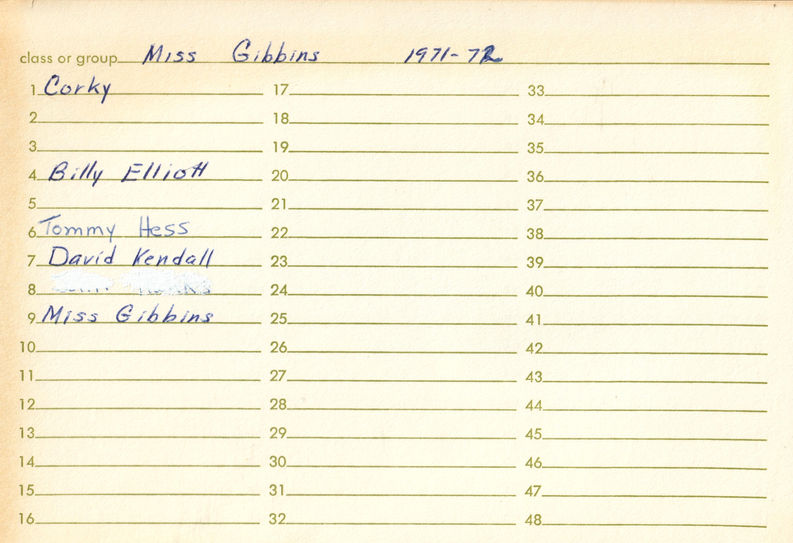 class or group Miss Gibbins 1971-72
1 Corky 17 33
2 18 34
3 19 35
4 Billy Elliott 20 36
5 21 37
6 Tommy Hess 22 38
7 David Kendall 23 39
8 24 40
9 Miss Gibbins 25 41
10 26 42
11 27 43
12 28 44
13 29 45
14 30 46
15 31 47
16 32 48